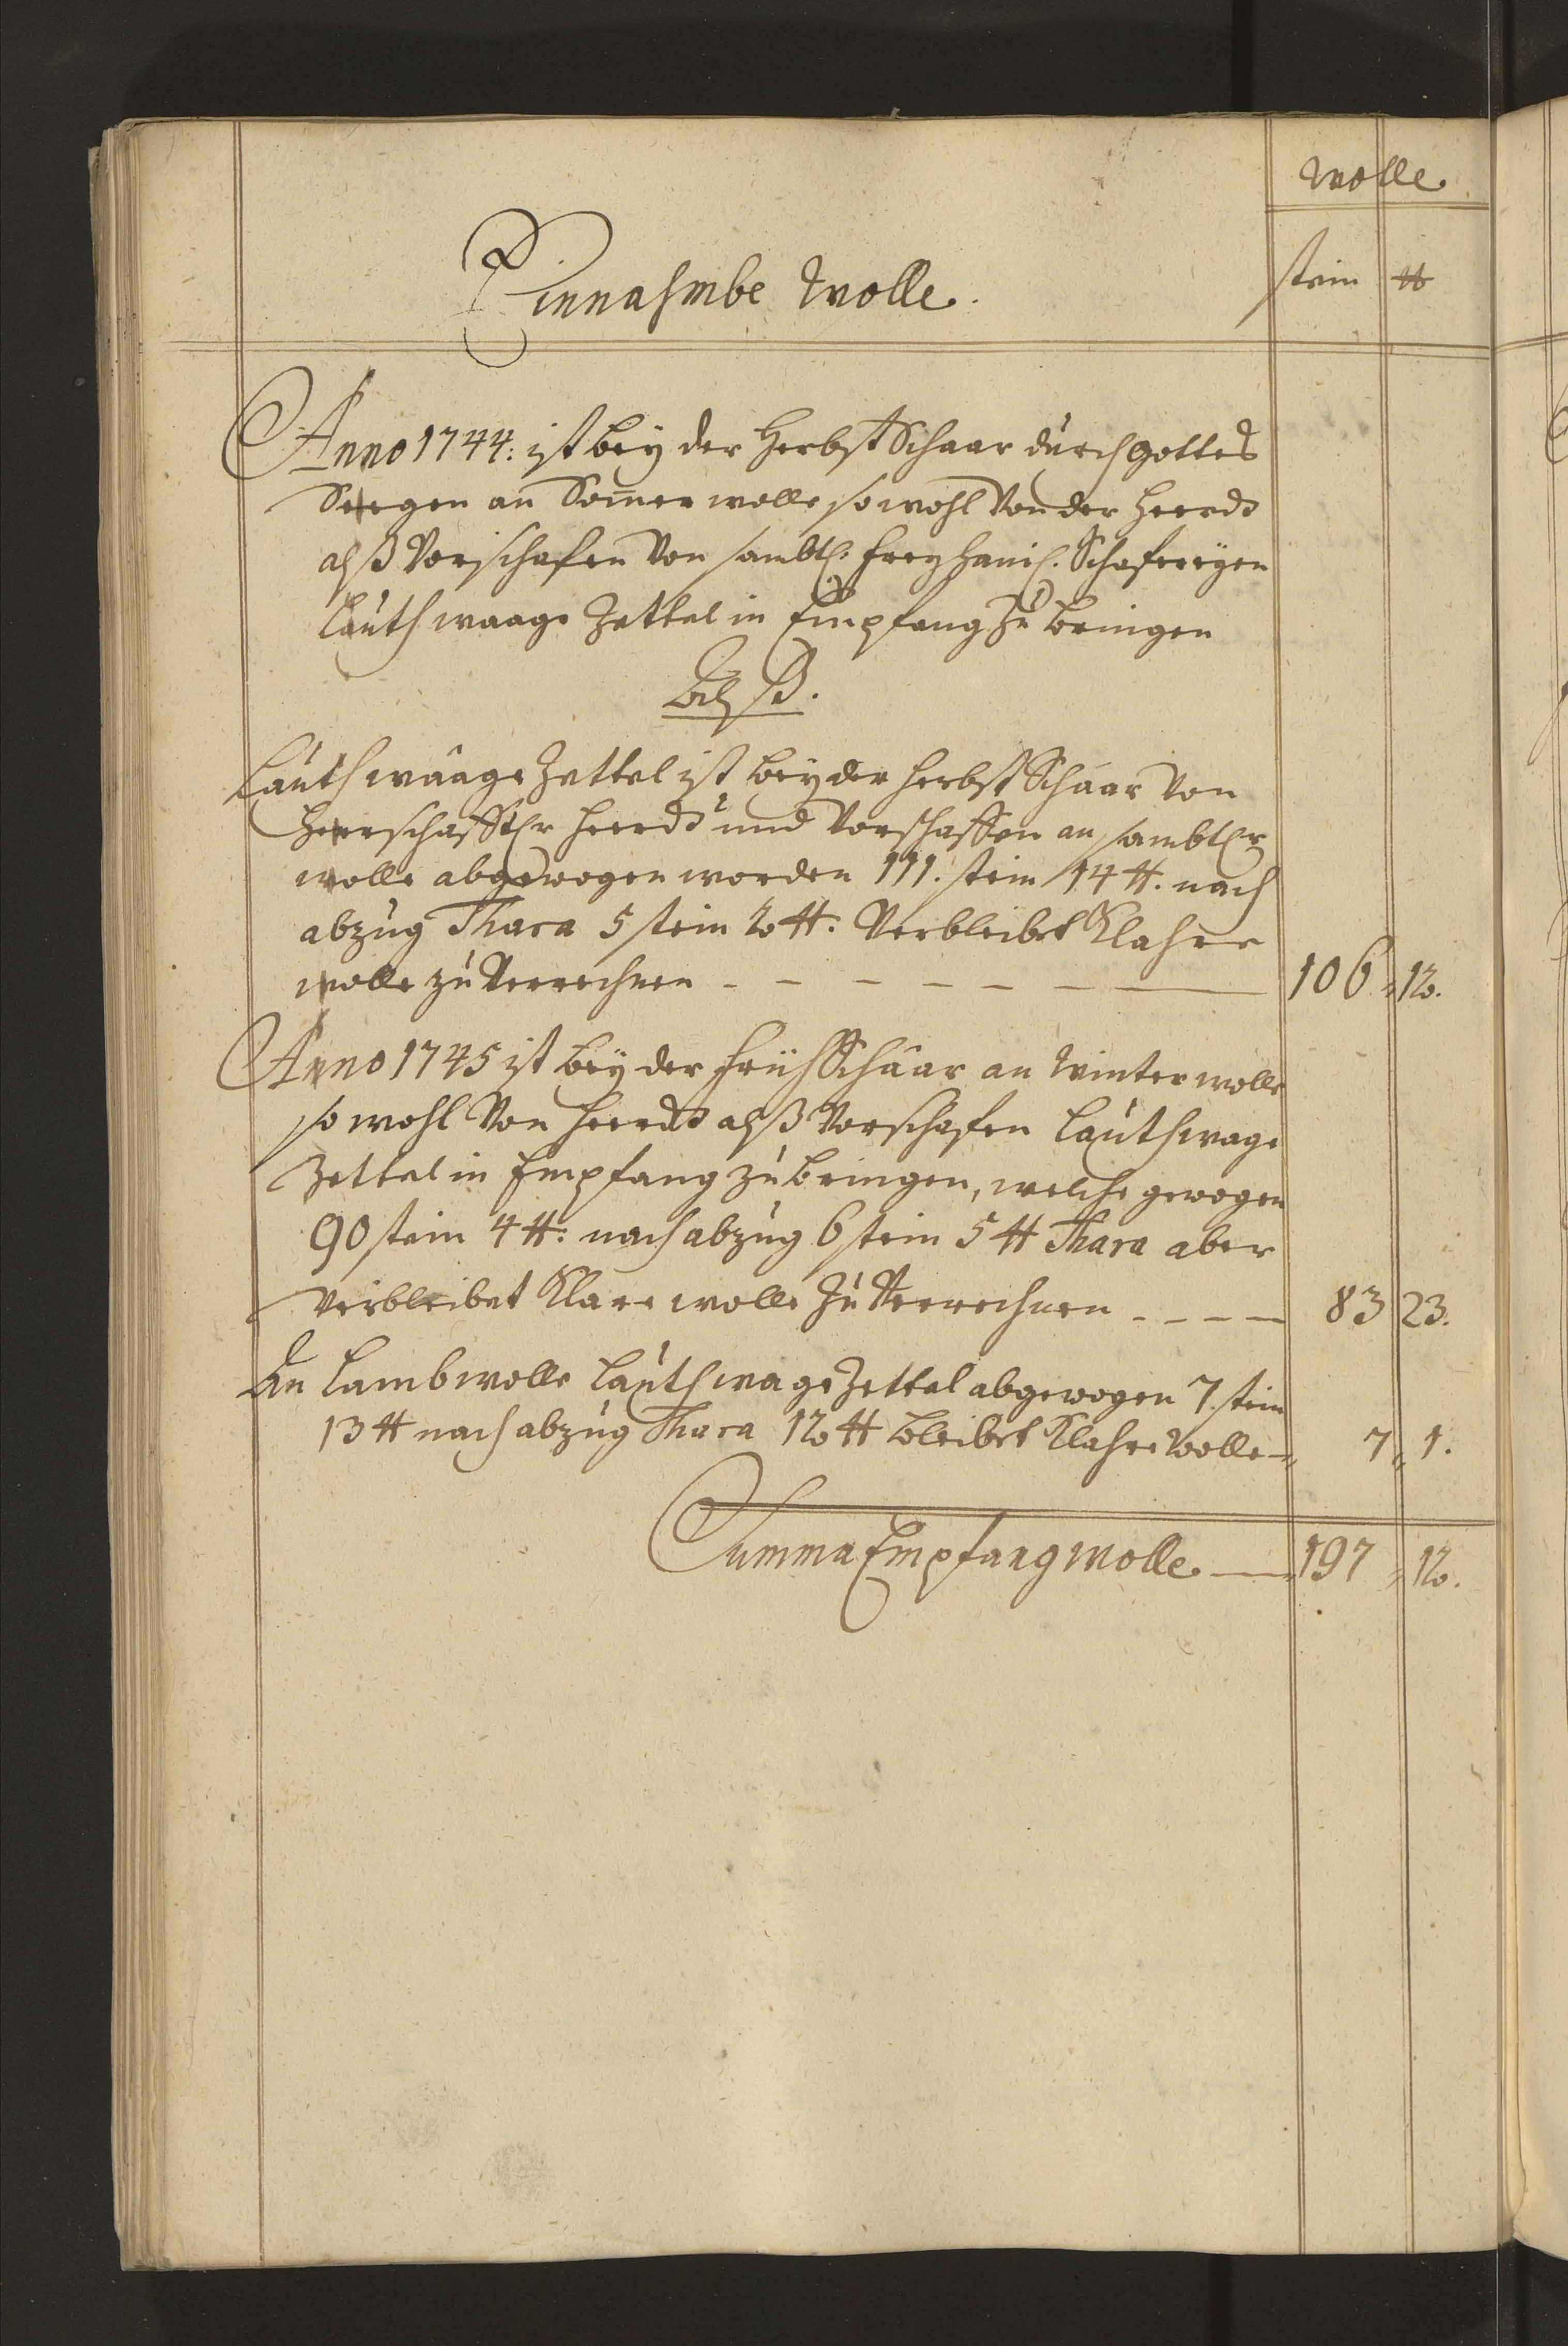 Wolle.
Einnahmbe Wolle.
stein ℔
Anno 1744: ist bey der Herbst Schaar durch Gottes
Seegen an Som̄er wolle so wohl Von der Heerdt
alß Vorschafen Von sambtl: freyhaml: Schafereyen
Lauth waage Zettel in Empfang zu bringen
Alß.
Lauth waage Zettel ist bey der Herbst Schaar Von
Herrschafftl: Heerdt und Vorschaffen an sambtler
wolle abgewogen worden 111. stein 14 ℔. nach
abzug Thara 5 stein 2 ℔: Verbleibet Klahre
wolle zu Verrechnen - - - - - - 106 „ 12.
Anno 1745 ist bey der Früh Schaar an Winter wolle
so wohl Von Heerdt alß Vorschafen Lauth wage
Zettel in Empfang zu bringen, welche gewogen
90 stein 4 ℔: nach abzug 6 stein 5 ℔ Thara aber
Verbleibet Klare wolle zu Verrechnen - - - - 83 23.
An Lamb wolle Lauth wage Zettel abgewogen 7. stein
13 ℔ nach abzug Thara 12 ℔ bleibet Klahre Wolle - 7 „ 1.
Summa Empfang Wolle — 197 „ 12.